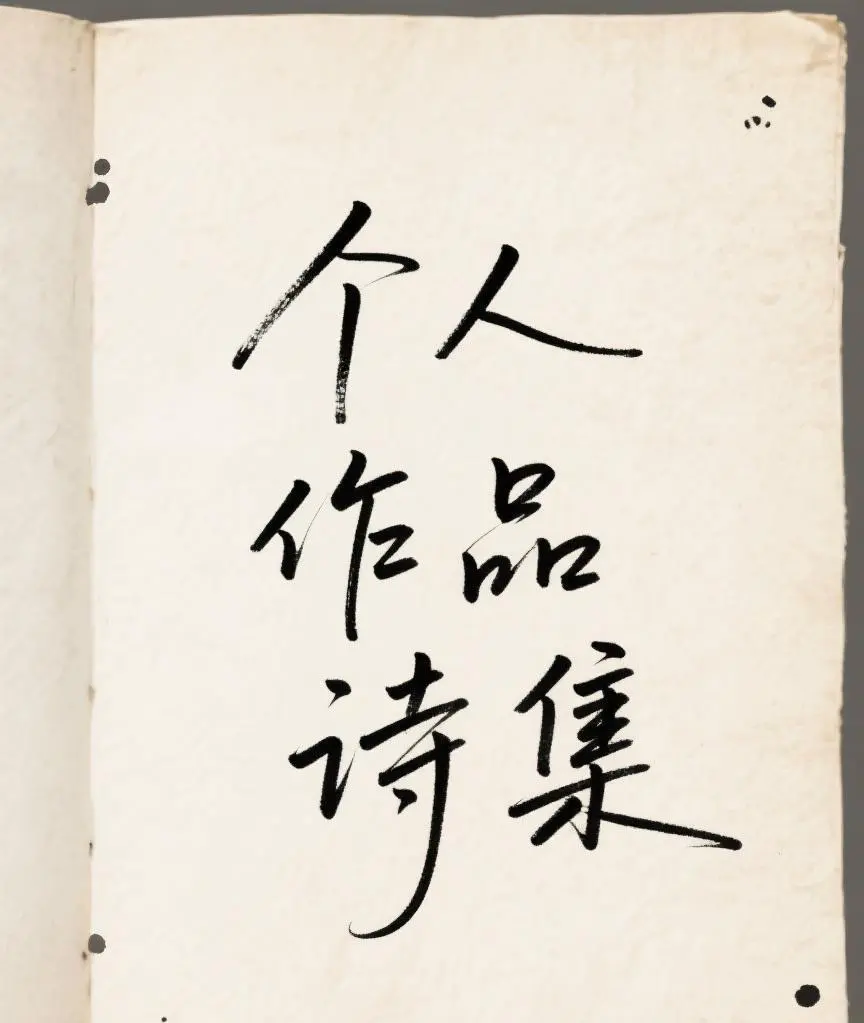 个人
作品
诗集